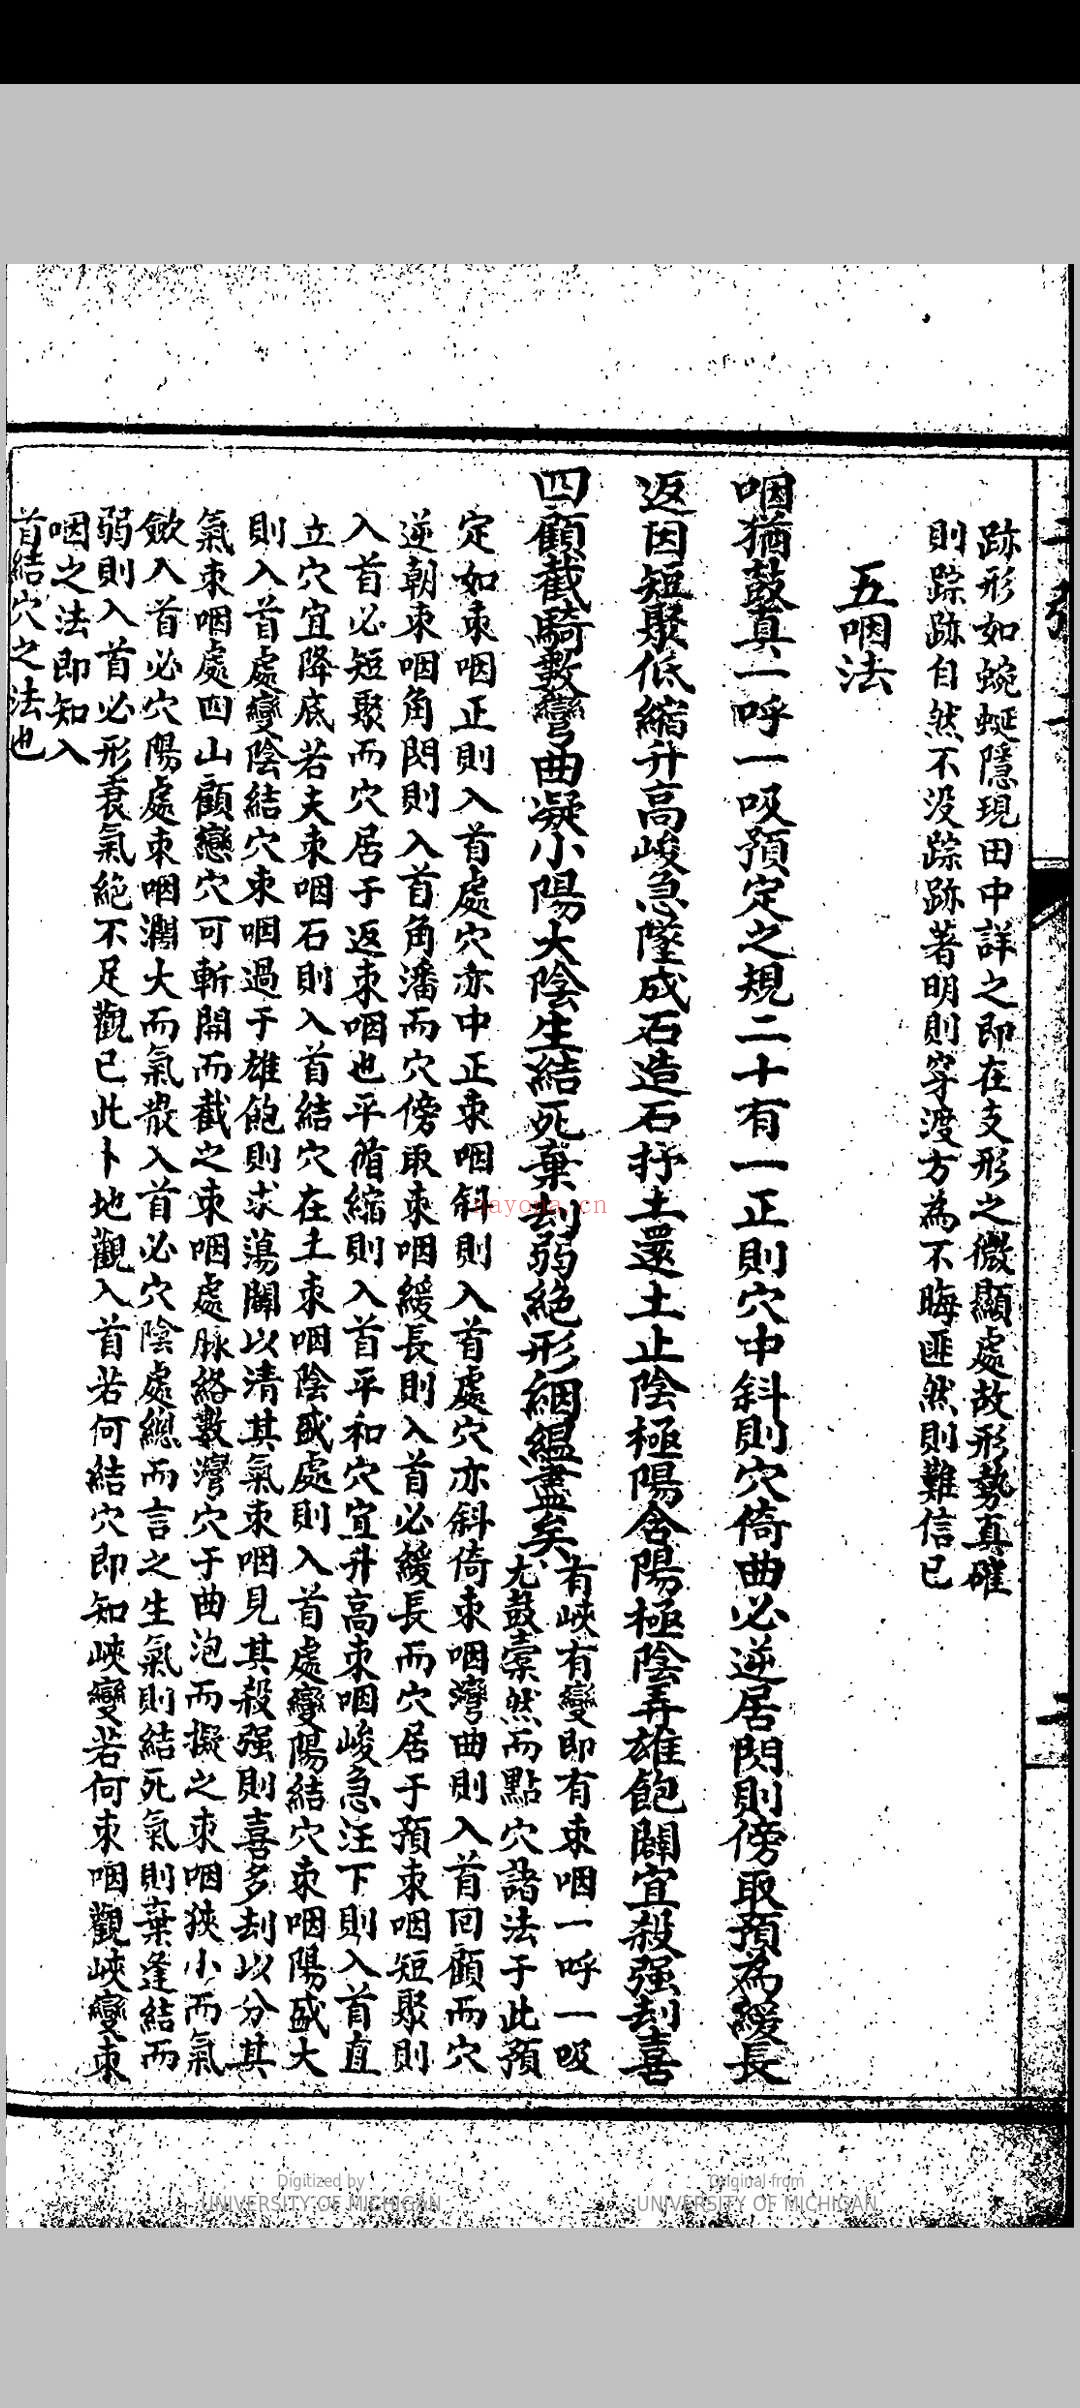 跡形如蜿蜒隱現田中詳之即在支形之微顯處故形勢真確
則踪跡自然不没踪跡著明則穿渡方為不晦匪然則難信已
五咽法
咽猶鼓真一呼一吸預定之規二十有一正則穴中斜則穴倚曲必逆居閃則傍取預為緩長
返因短聚低縮升高峻急墜成石造石抒土還土止陰極陽含陽極陰弄雄飽闢宜殺强刦喜
四顧截騎數彎曲凝小陽大陰生結死棄刦弱絕形絪緼盡矣
有峽有變即有束咽一呼一吸
尤鼓橐然而點穴諸法于此預
定如束咽正則入首處穴亦中正束咽斜則入首處穴亦斜倚束咽灣曲則入首回顧而穴
逆朝束咽角閃則入首角潘而穴傍取束咽緩長則入首必緩長而穴居于預束咽短聚則
入首必短聚而穴居于返束咽也平脩縮則入首平和穴宜升高束咽峻急汪下則入首直
立穴宜降底若夫束咽石則入首結穴在土束咽陰盛處則入首處變陽結穴束咽陽盛大
則入首處變陰結穴束咽過于雄飽則求蕩闢以清其氣束咽見其殺强則喜多刦以分其
氣束咽處四山顧戀穴可斬關而截之束咽處脉絡數灣穴于曲泡而擬之束咽狹小而氣
斂入首必穴陽處束咽濶大而氣散入首必穴陰處總而言之生氣則結死氣則棄逢結而
弱則入首必形衰氣絕不足觀已此卜地觀入首若何結穴即知峽變若何束咽觀峽變束
咽之法即知入
首結穴之法也
nayona.cn
Digitized by
UNIVERSITY OF MICHIGAN
Original from
UNIVERSITY OF MICHIGAN